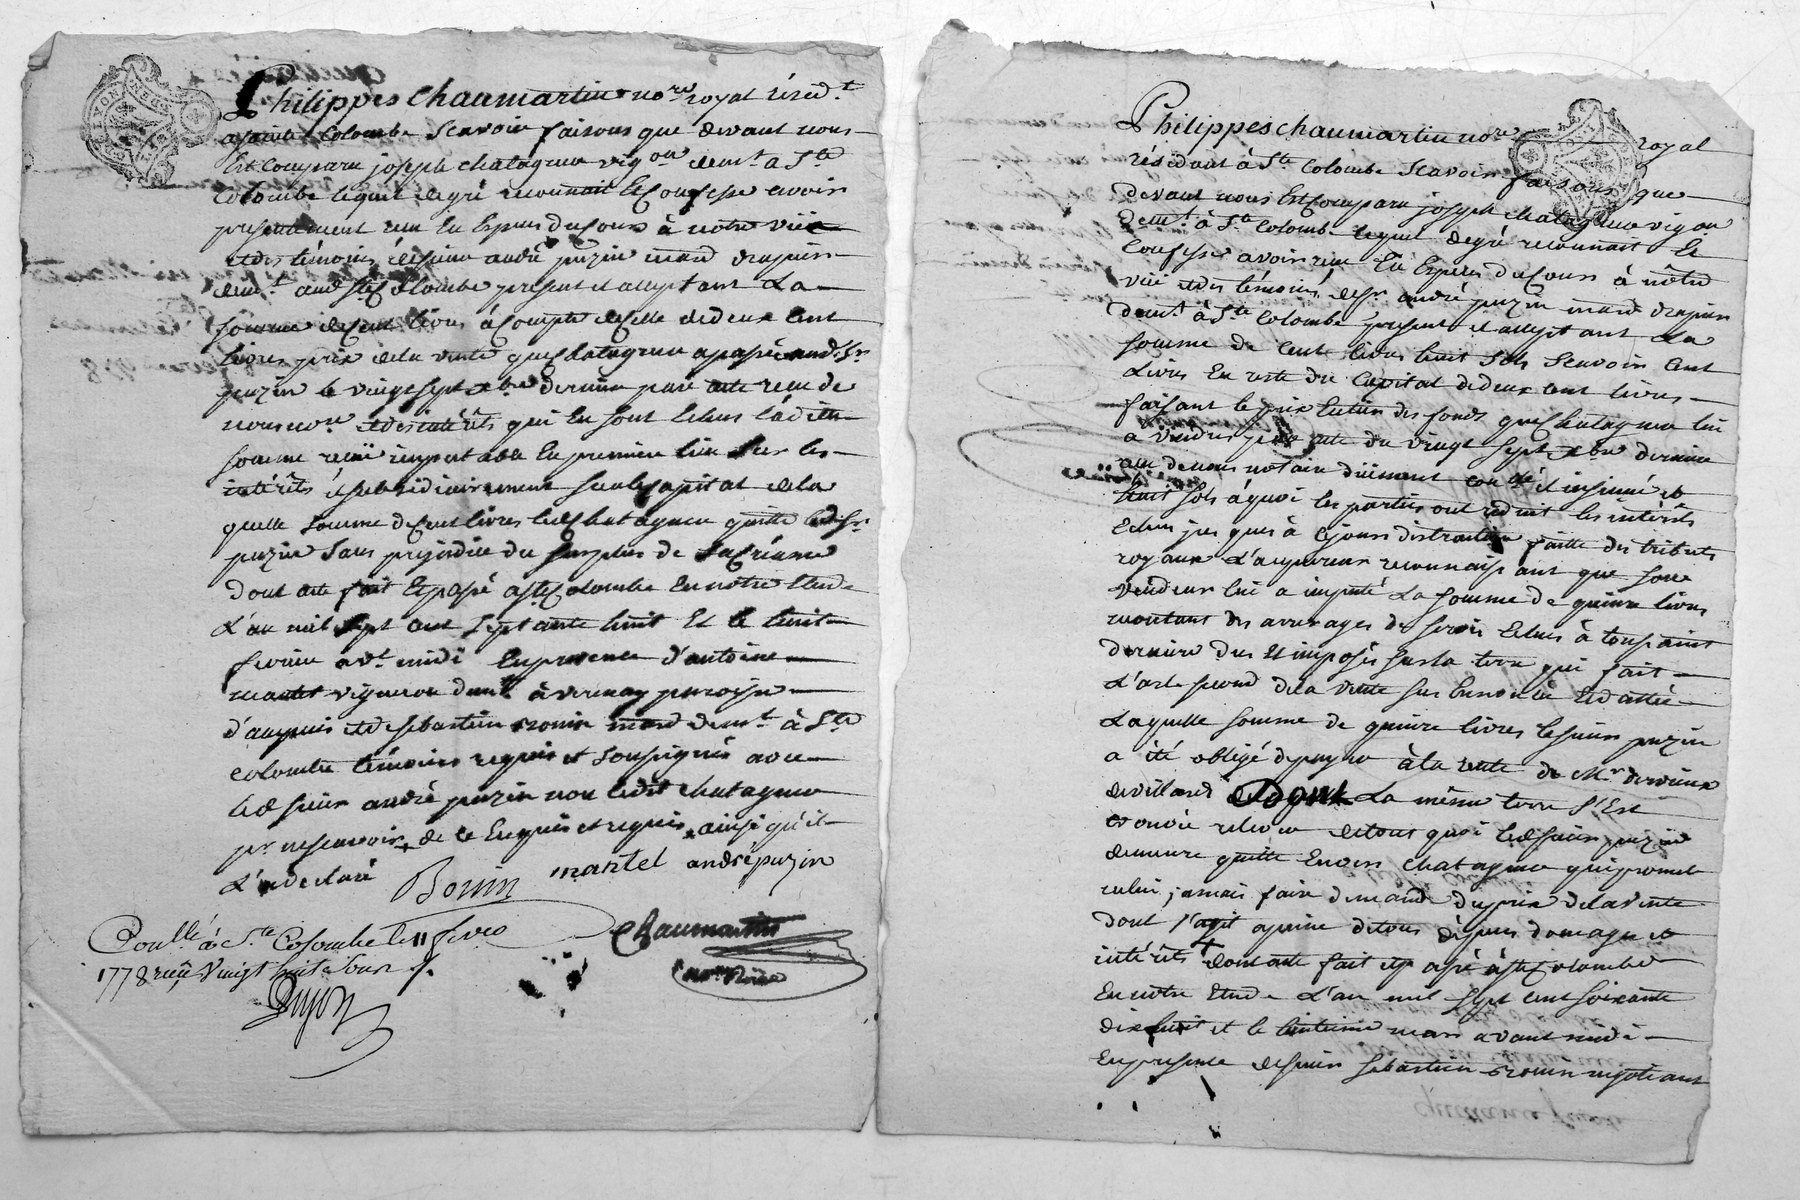 Philippes Chaumartin no.re royal résid.t
a sainte Colombe Scavoir faisons que devant nous
Est Comparu joseph chatagneu vig.on dem.t a S.te
Colombe lequel de gré reconnait et Confesse avoir
presentement reçu En Especes du Cours à notre vüe
et des témoins de sieur andré puzin mard drapier
dem.t aud S.te Colombe present et acceptant La
somme de Cent livres à Compte de Celle de deux Cent
livres prix de la vente que Chatagneu a passé aud. S.r
puzin le vingt sept xbre dernier par acte reçu de
nous no.re et des intérêts qui En sont Echus Ladite
somme imputable En premier lieu sur les
intérêts et subsidiairement sur le Capital de la
quelle somme de Cent livres led Chatagneu quitte led Sr
puzin Sans prejudice du surplus de Sa Créance
Dont acte fait Et passé à Ste Colombe En notre Etude
L'an mil Sept cent Septante huit Et le huit
fevrier av.t midi En presence d'antoine
martel vigneron dem.t à vernay paroisse
d'ampuis et de sebastien Bonin mard dem.t à S.te
colombe témoins requis et soussignés avec
led sieur andré puzin non ledit chatagneu
p.r ne scavoir de ce Enquis et requis ainsi qu'il
L'a declaré
Bonin martel andré puzin
Chaumartin
no.re
Conllé à S.te Colombe le 11 fevrer
1778 reçu Vingt huit Sous
Philippes chaumartin no.re royal
résidant à S.te Colombe Scavoir faisons que
devant nous Est Comparu joseph chatagneu vig.on
dem.t à S.te Colombe lequel de gré reconnait Et
Confesse avoir reçu En Especes du Cours à nôtre
vüe et des témoins, de s.r andré puzin mard drapier
dem.t à S.te Colombe present et acceptant La
somme de Cent livres huit Sols Scavoir Cent
Livres En reste du Capital de deux cent livres
faisant le prix Entier des fonds que Chatagneu lui
a vendus par acte du vingt Sept xbre dernier
reçu de nous notaire düement con.llé et insinué et
huit sols à quoi les parties ont réduit les intérêts
Echus jusques à Ce jour distraction faitte des tributs
royaux L'acquereur reconnaissant que son
vendeur lui a imputé La somme de quinze livres
montant des arrerages de servis Echus à toussaint
dernier dus Et imposés sur la terre qui fait
L'article second de la vente sus Enoncée Et dattée
Laquelle somme de quinze livres le sieur puzin
a été obligé de payer à la rente de M.r
de villars Dont La même terre S'Est
trouvée relever de tout quoi led sieur puzin
demeure quitte Envers chatagneu qui promet
ne lui jamais faire demande du prix de la vente
dont s'agit a peine de tous dépens domages et
intérêts dont acte fait et passé à Ste Colombe
En notre Etude L'an mil Sept cent soixante
dix huit et le huitieme mars avant midi
En presence de sieur Sebastien Bonin negotiant